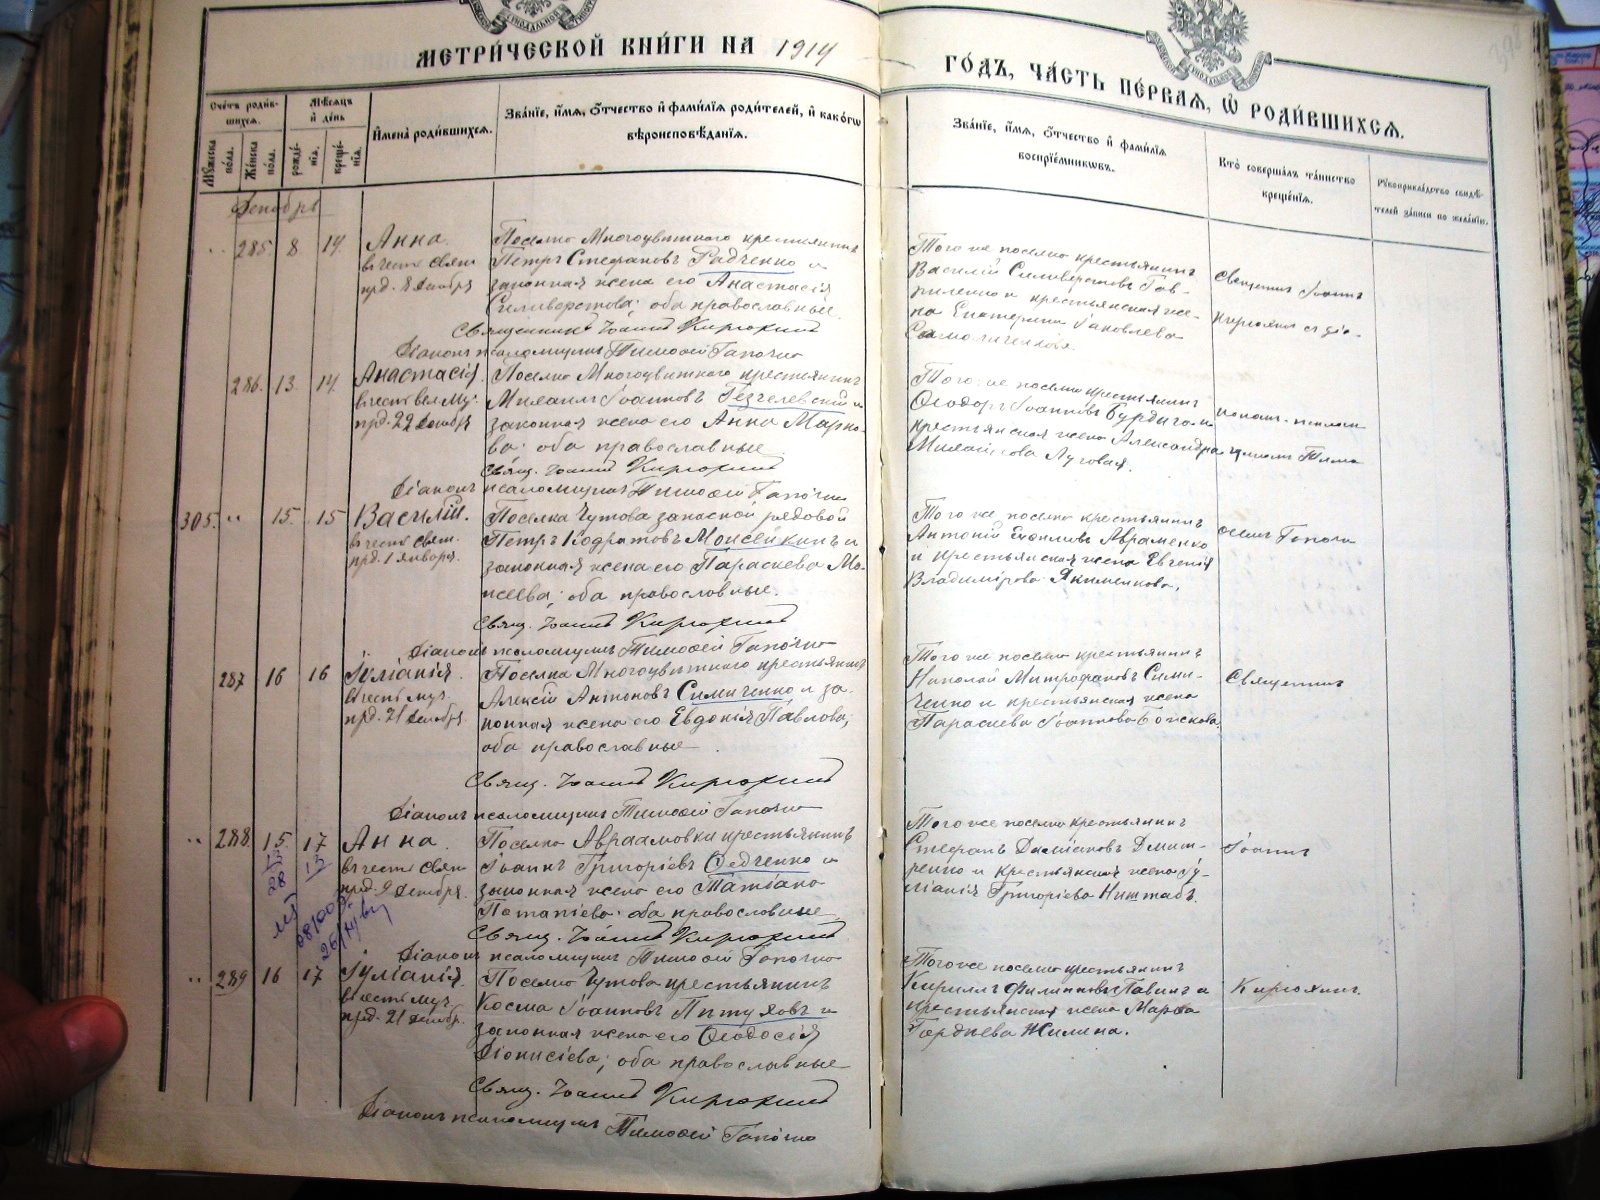 МЕТРИ́ЧЕСКОЙ КНИ́ГИ НА 1914
ГО́ДЪ, ЧА́СТЬ ПЕ́РВАЯ, Ѡ РОДИ́ВШИХСЯ.
398
Сче́тъ роди́вшихся.
Му́жеска по́ла.
Же́нска по́ла.
Мѣ́сяцъ и де́нь
рожде́нїя.
креще́нїя.
Имена̀ роди́вшихся.
Зва́нїе, и́мя, о́тчество и фами́лїя роди́телей, и како́гѡ
вѣроисповѣ́данїя.
Зва́нїе, и́мя, о́тчество и фами́лїя
воспрїе́мниковъ.
Кто̀ соверша́лъ та́инство
креще́нїя.
Рукоприкла́дство свидѣ́телей за́писи по жела́нїю.
Декабрь
285. 8. 14. Анна.
въ честь свят.
прд. 8 Декабря
Поселка Многоцвѣтнаго крестьянинъ
Петръ Стефановъ Радченко и
законная жена его Анастасія
Силиверстова; оба православные.
Священникъ Іоаннъ Кирюхинъ
Діаконъ псаломщикъ Тимофей Гапочка
Того же поселка крестьянинъ
Василій Силиверстовъ Гавриленко и крестьянская жена Екатерина Іаковлева
Священникъ Іоаннъ
286. 13. 14. Анастасія.
въ честь вел. му.
прд. 22 Декабря
Поселка Многоцвѣтнаго крестьянинъ
Михаилъ Іоанновъ и
законная жена его Анна Маркова; оба православные.
Свящ. Іоаннъ Кирюхинъ
Діаконъ псаломщикъ Тимофей Гапочка
Того же поселка крестьянинъ
Ѳеодоръ Іоанновъ Бурдыга и
крестьянская жена Александра
Михайлова Луговая.
305. " 15. 15 Василій.
въ честь свят.
прд. 1 Января.
Поселка Чутова запасной рядовой
Петръ Кодратовъ Моисейкинъ и
законная жена его Параскева Моисеева; оба православные.
Свящ. Іоаннъ Кирюхинъ
Діаконъ псаломщикъ Тимофей Гапочка
Того же поселка крестьянинъ
Антоній Авраменко
и крестьянская жена Евгенія
Владимірова Якименкова.
287 16 16 Іуліанія.
въ честь муч.
прд. 21 Декабря
Поселка Многоцвѣтнаго крестьянинъ
Алексій Антоновъ Симиченко и законная жена его Евдокія Павлова;
оба православные.
Свящ. Іоаннъ Кирюхинъ
Діаконъ псаломщикъ Тимофей Гапочка
Того же поселка крестьянинъ
Николай Митрофановъ Симиченко и крестьянская жена
Параскева Іоаннова Бойкова.
Священникъ
" 288. 15. 17 Анна.
въ честь свят.
прд. 9 Декабря.
Поселка Авраамовки крестьянинъ
Іоаннъ Григоріевъ Ѳедченко и
законная жена его Татіана
Потапіева; оба православные
Свящ. Іоаннъ Кирюхинъ
Діаконъ псаломщикъ Тимофей Гапочка
Того же поселка крестьянинъ
Стефанъ Даміановъ Дмитренко и крестьянская жена Іуліанія Григоріева
Іоаннъ
" 289 16 17 Іуліанія.
въ честь муч.
прд. 21 Декабр.
Поселка Чутова крестьянинъ
Косма Іоанновъ Питуховъ и
законная жена его Ѳеодосія
Діонисіева; оба православные
Свящ. Іоаннъ Кирюхинъ
Діаконъ псаломщикъ Тимофей Гапочка
Того же поселка крестьянинъ
Кириллъ Филипповъ и
крестьянская жена Марфа
Гордѣева Жилина.
Кирюхинъ.